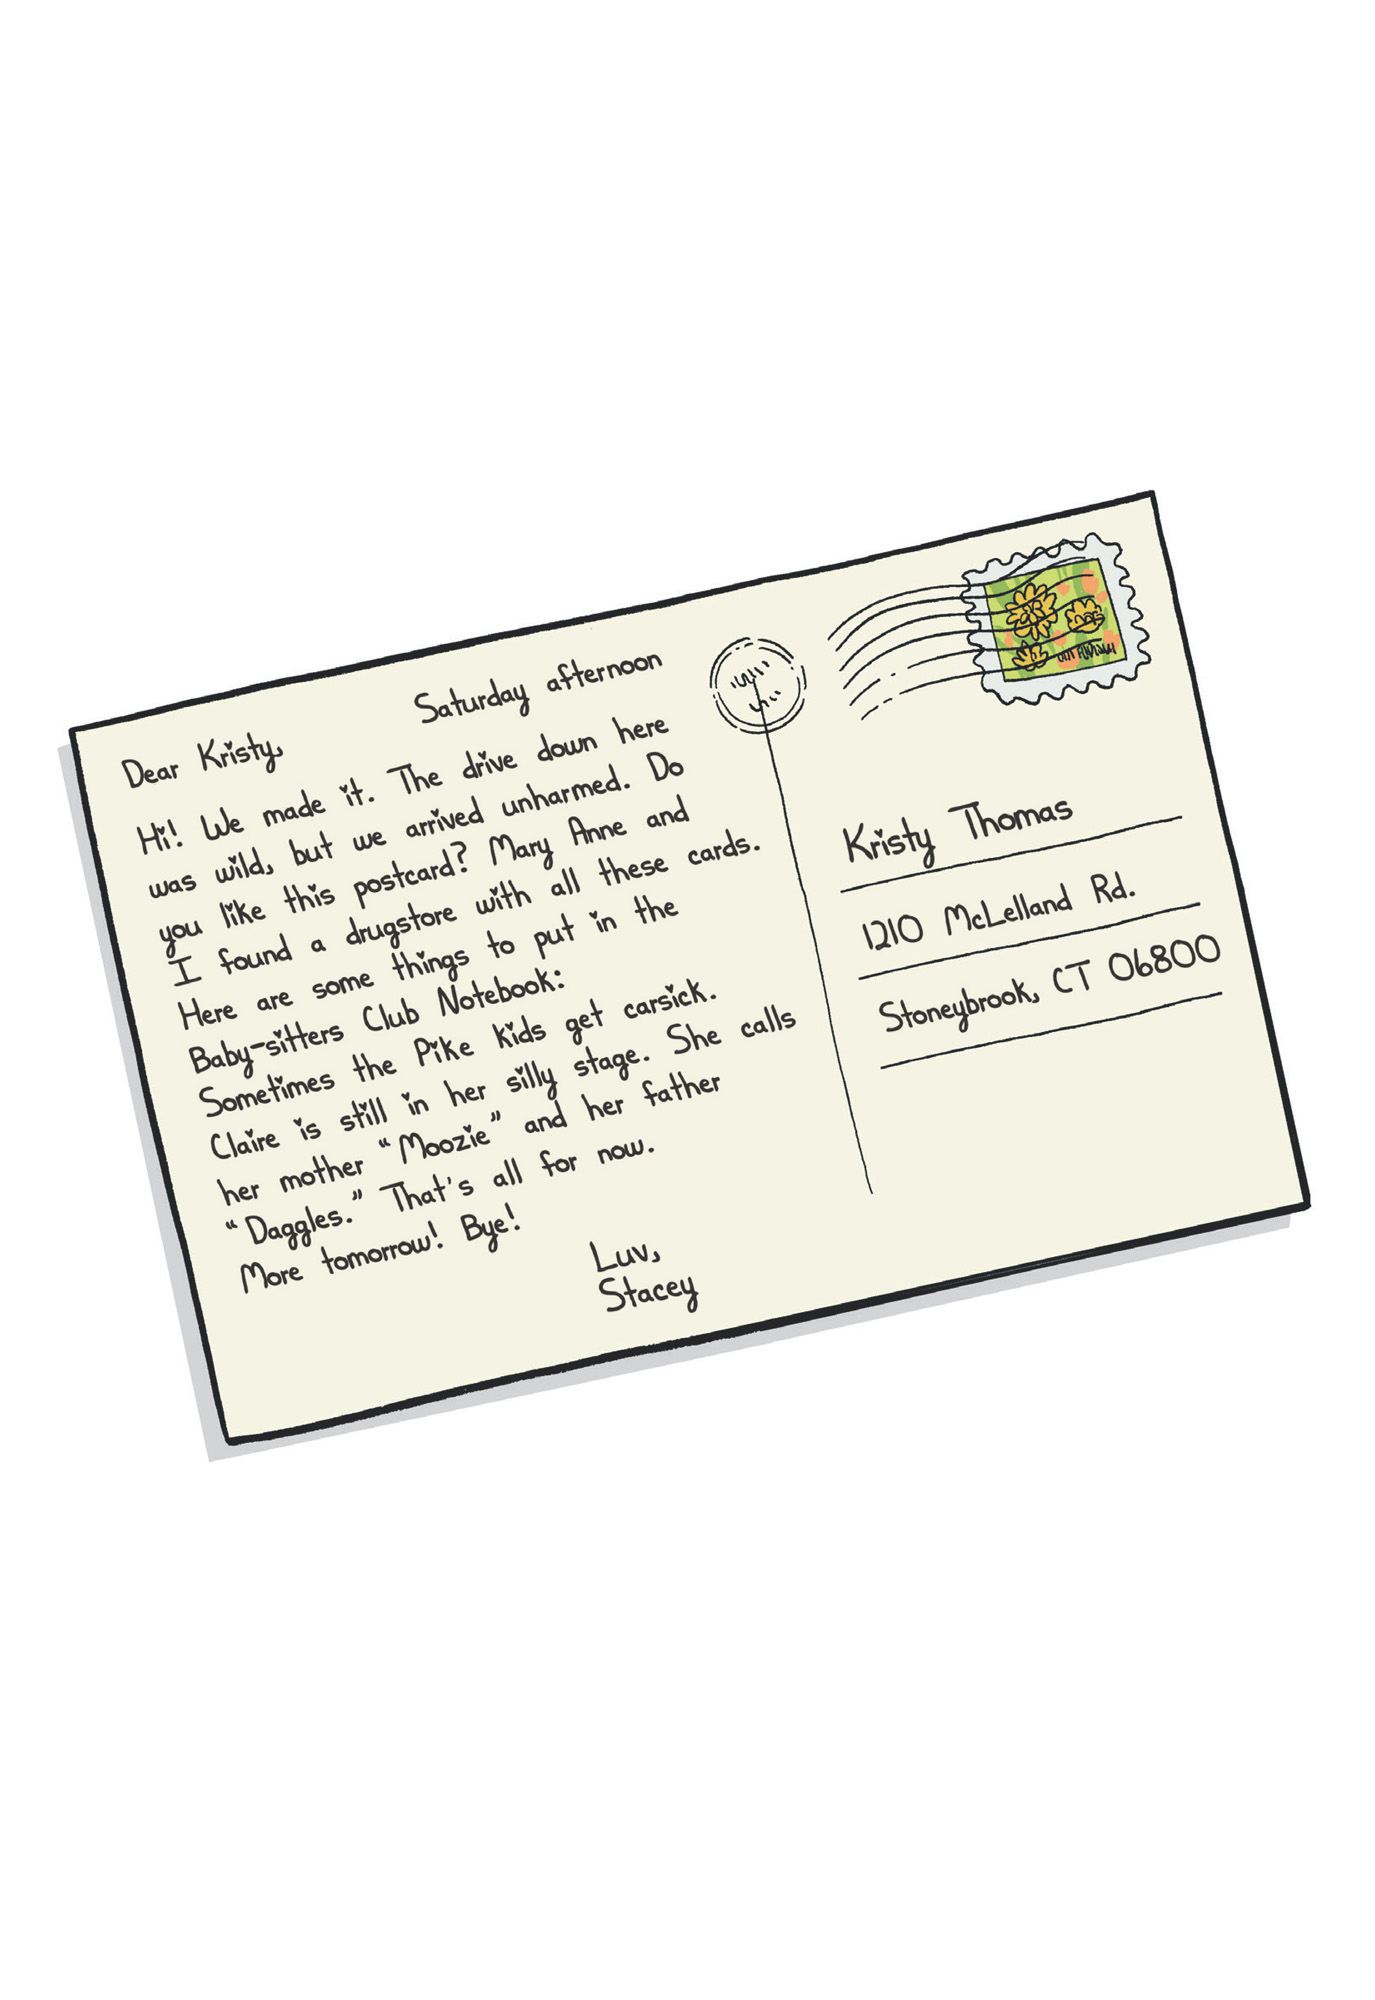 Saturday afternoon
Dear Kristy,
Hi! We made it. The drive down here
was wild, but we arrived unharmed. Do
you like this postcard? Mary Anne and
I found a drugstore with all these cards.
Here are some things to put in the
Baby-sitters Club Notebook:
Sometimes the Pike kids get carsick.
Claire is still in her silly stage. She calls
her mother “Moozie” and her father
“Daggles.” That's all for now.
More tomorrow! Bye!
Luv,
Stacey
Kristy Thomas
1210 McLelland Rd.
Stoneybrook, CT 06800